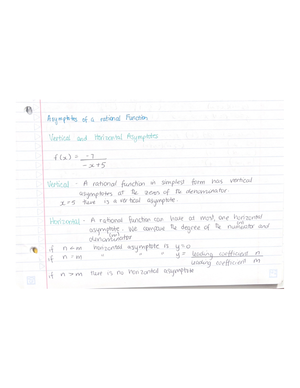 Asymptotes of a rational Function
Vertical and Horizontal Asymptotes
f(x) = -7
-x+5
Vertical - A rational function in simplest form has vertical
asymptotes at the zeros of the denominator.
x=5 there is a vertical asymptote.
Horizontal - A rational function can have at most, one horizontal
asymptote. We compare the degree of the numerator (n) and
denominator (m)
if n<m horizontal asymptote is y=0
if n=m " " " y= leading coefficient n
leading coefficient m
if n>m there is no horizontal asymptote